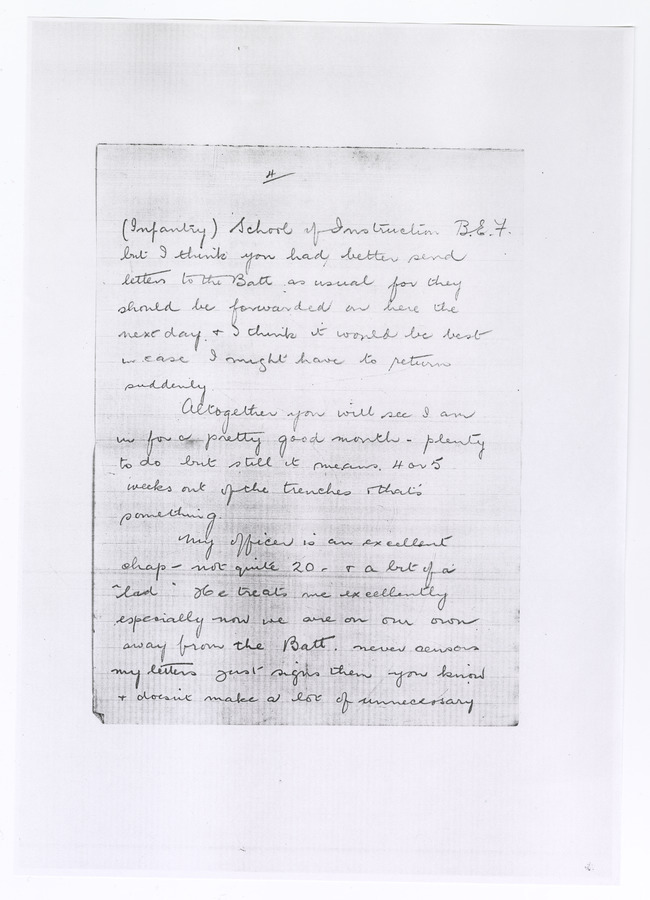 4
(Infantry) School of Instruction B.E.F.
but I think you had better send
letters to the Batt as usual for they
should be forwarded on here the
next day. + I think it would be best
in case I might have to return
suddenly
Altogether you will see I am
in for a pretty good month - plenty
to do but still it means, 4 or 5
weeks out of the trenches + that's
something.
My officer is an excellent
chap - not quite 20 - + a bit of a
"lad" He treats me excellently
especially now we are on our own
away from the Batt. never censors
my letters just signs them you know
+ doesn't make a lot of unnecessary